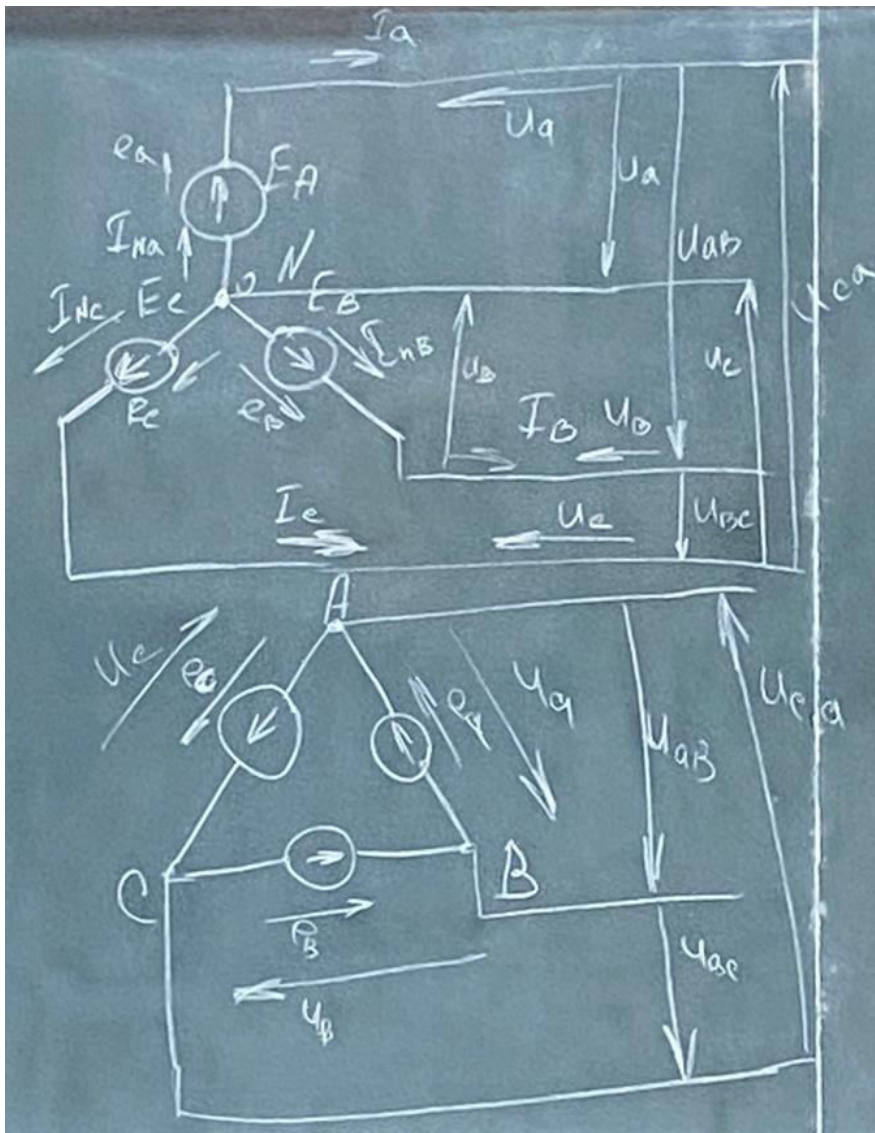 Ia
Ua
ea
EA
Ua
INa
UaB
N
Uca
INc
Ec
EB
InB
UB
Uc
ec
eB
IB
UB
Ic
Uc
UBC
A
Uc
ea
Ua
Uca
UaB
C
B
eB
UB